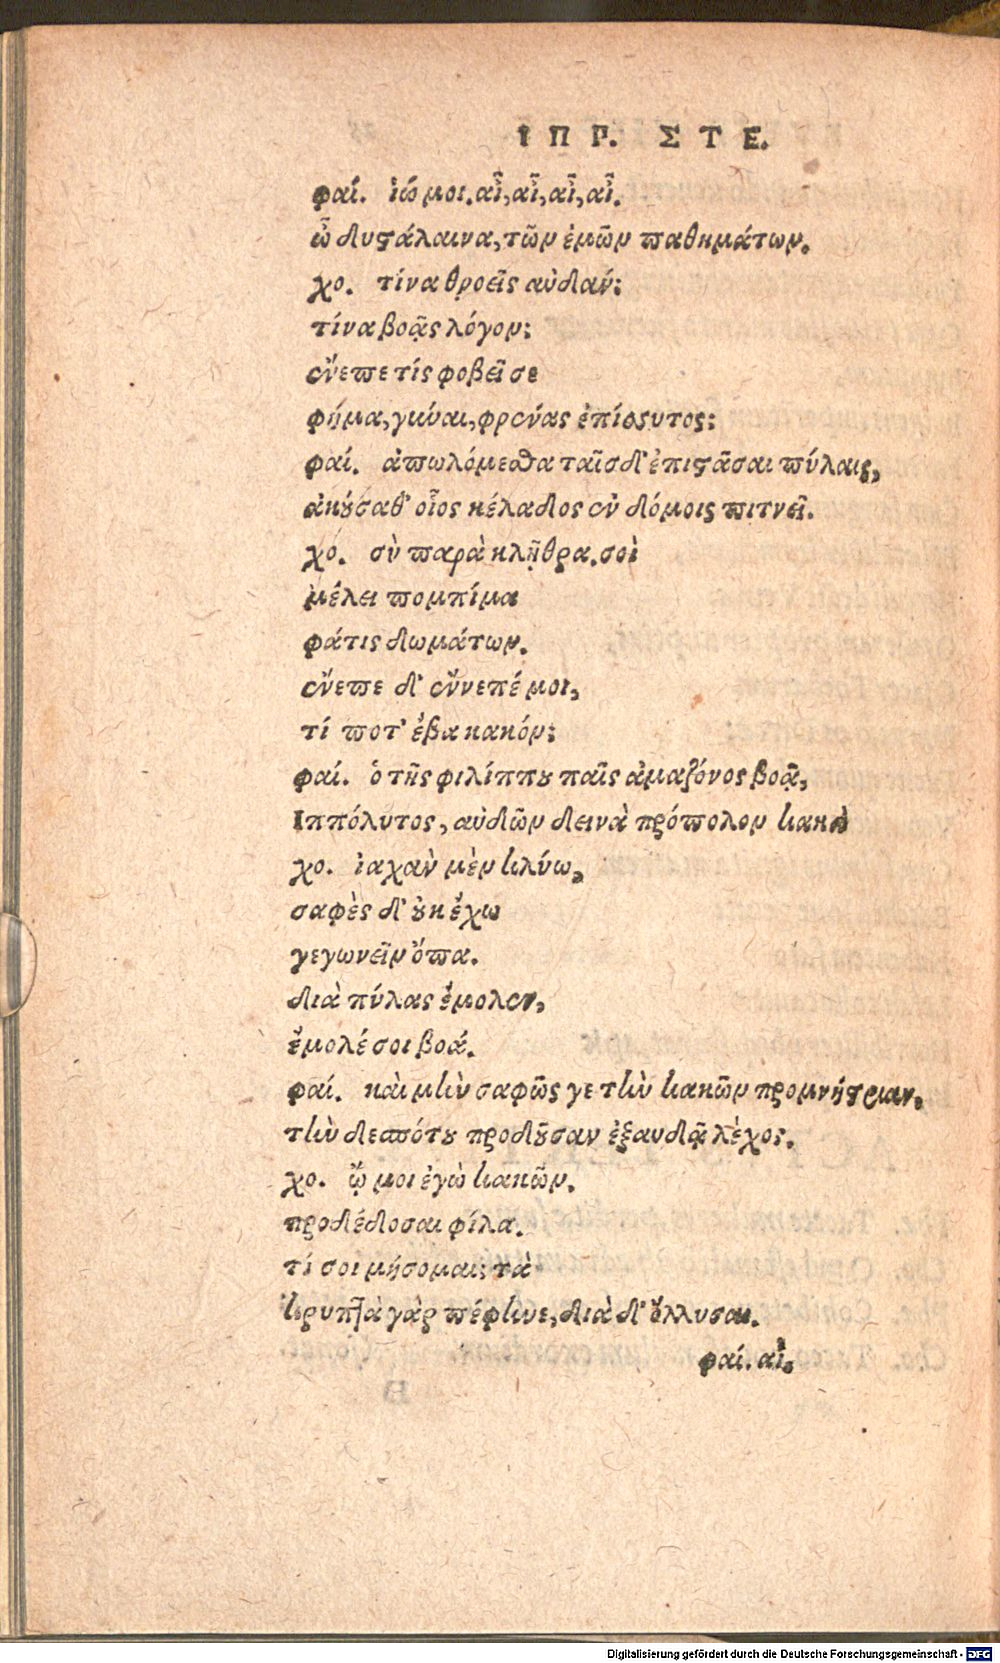 ΙΠΠ. ΣΤΕ.
φαί. ἰώ μοι. αἶ, αἶ, αἶ, αἶ.
ὦ δυστάλαινα, τῶν ἐμῶν παθημάτων.
χο. τίνα θροεῖς αὐδάν;
τίνα βοᾷς λόγον;
ἔνεπε τίς φοβεῖ σε
φήμα, γύναι, φρένας ἐπίσσυτος;
φαί. ἀπωλόμεσθα ταῖσδ' ἐπιστᾶσαι πύλαις,
ἀκούσαθ' οἷος κέλαδος ἐν δόμοις πιτνεῖ.
χο. σὺ παρὰ κλῇθρα. σοὶ
μέλει πομπίμα
φάτις δωμάτων.
ἔνεπε δ' ἔννεπέ μοι,
τί ποτ' ἔβα κακόν;
φαί. ὁ τῆς φιλίππου παῖς ἀμαζόνος βοᾷ,
Ιππόλυτος, αὐδῶν δεινὰ πρόπολον κακὰ
χο. ἰαχὰν μὲν κλύω,
σαφὲς δ' οὐκ ἔχω
γεγωνεῖν ὅπα.
διὰ πύλας ἔμολεν,
ἔμολέ σοι βοά.
φαί. καὶ μὴν σαφῶς γε τὴν κακῶν προμνήστριαν,
τὴν δεσπότου προδοῦσαν ἐξαυδᾷ λέχος.
χο. ᾤ μοι ἐγὼ κακῶν.
προδέδοσαι φίλα.
τί σοι μήσομαι; τὰ
κρυπτὰ γὰρ πέφηνε, διὰ δ' ὄλλυσαι.
φαί. αἶ,
Digitalisierung gefördert durch die Deutsche Forschungsgemeinschaft - DFG